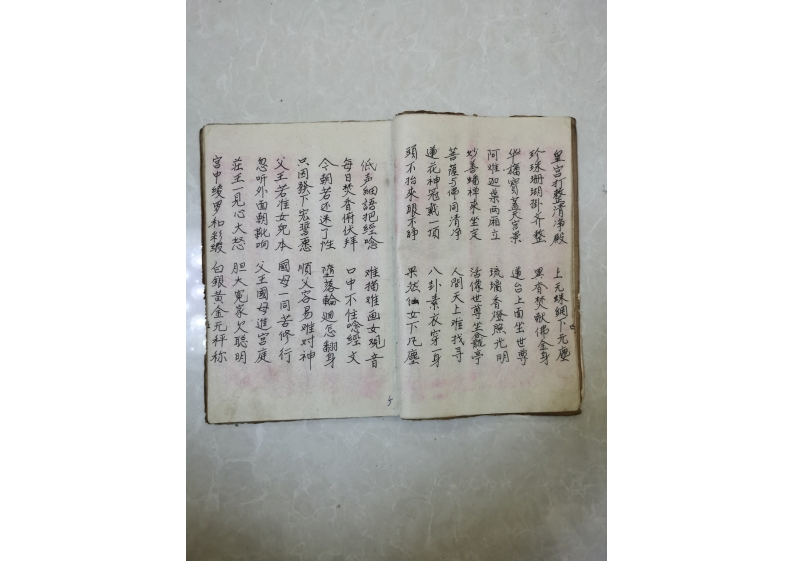 皇宫打整清净殿 上无蛛網下无塵
珍珠珊瑚掛齐整 異香焚献佛金身
华旛寶蓋天宫景 蓮台上面坐世尊
阿难迦葉两廂立 琉璃香燈照光明
妙善蟠禅来坐定 活像世尊坐龕亭
菩薩与佛同清净 人間天上难找寻
蓮花神冠戴一項 八卦素衣穿一身
頭不抬来眼不睁 果然仙女下凡塵
低声細語把經唸 难描难画女观音
每日焚香俯伏拜 口中不住唸經文
今朝若还迷了性 墮落輪廻怎翻身
只因發下宏誓愿 順父容易难对神
父王若准女兒本 國母一同苦修行
忽听外面朝靴响 父王國母進宫庭
莊王一見心大怒 胆大冤家欠聪明
宫中綾罗和彩 白银黄金无秤称
5